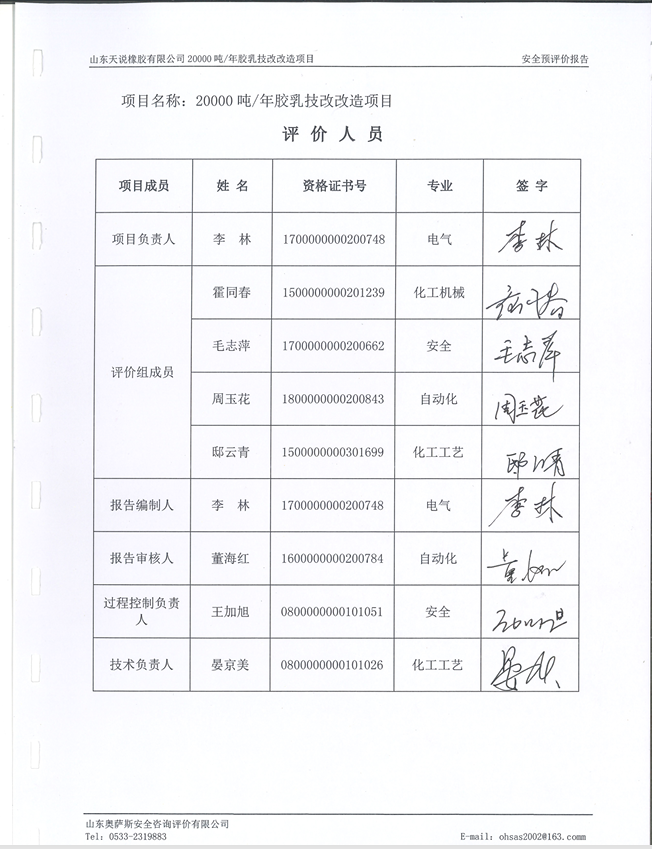 山东天说橡胶有限公司 20000 吨/年胶乳技改改造项目 安全预评价报告
项目名称：20000 吨/年胶乳技改改造项目
评 价 人 员
项目成员 姓 名 资格证书号 专业 签 字
项目负责人 李 林 1700000000200748 电气 李林
评价组成员 霍同春 1500000000201239 化工机械
毛志萍 1700000000200662 安全 毛志萍
周玉花 1800000000200843 自动化 周玉花
邸云青 1500000000301699 化工工艺 邸云青
报告编制人 李 林 1700000000200748 电气 李林
报告审核人 董海红 1600000000200784 自动化
过程控制负责
人 王加旭 0800000000101051 安全
技术负责人 晏京美 0800000000101026 化工工艺
山东奥萨斯安全咨询评价有限公司
Tel: 0533-2319883 E-mail: ohsas2002@163.comm